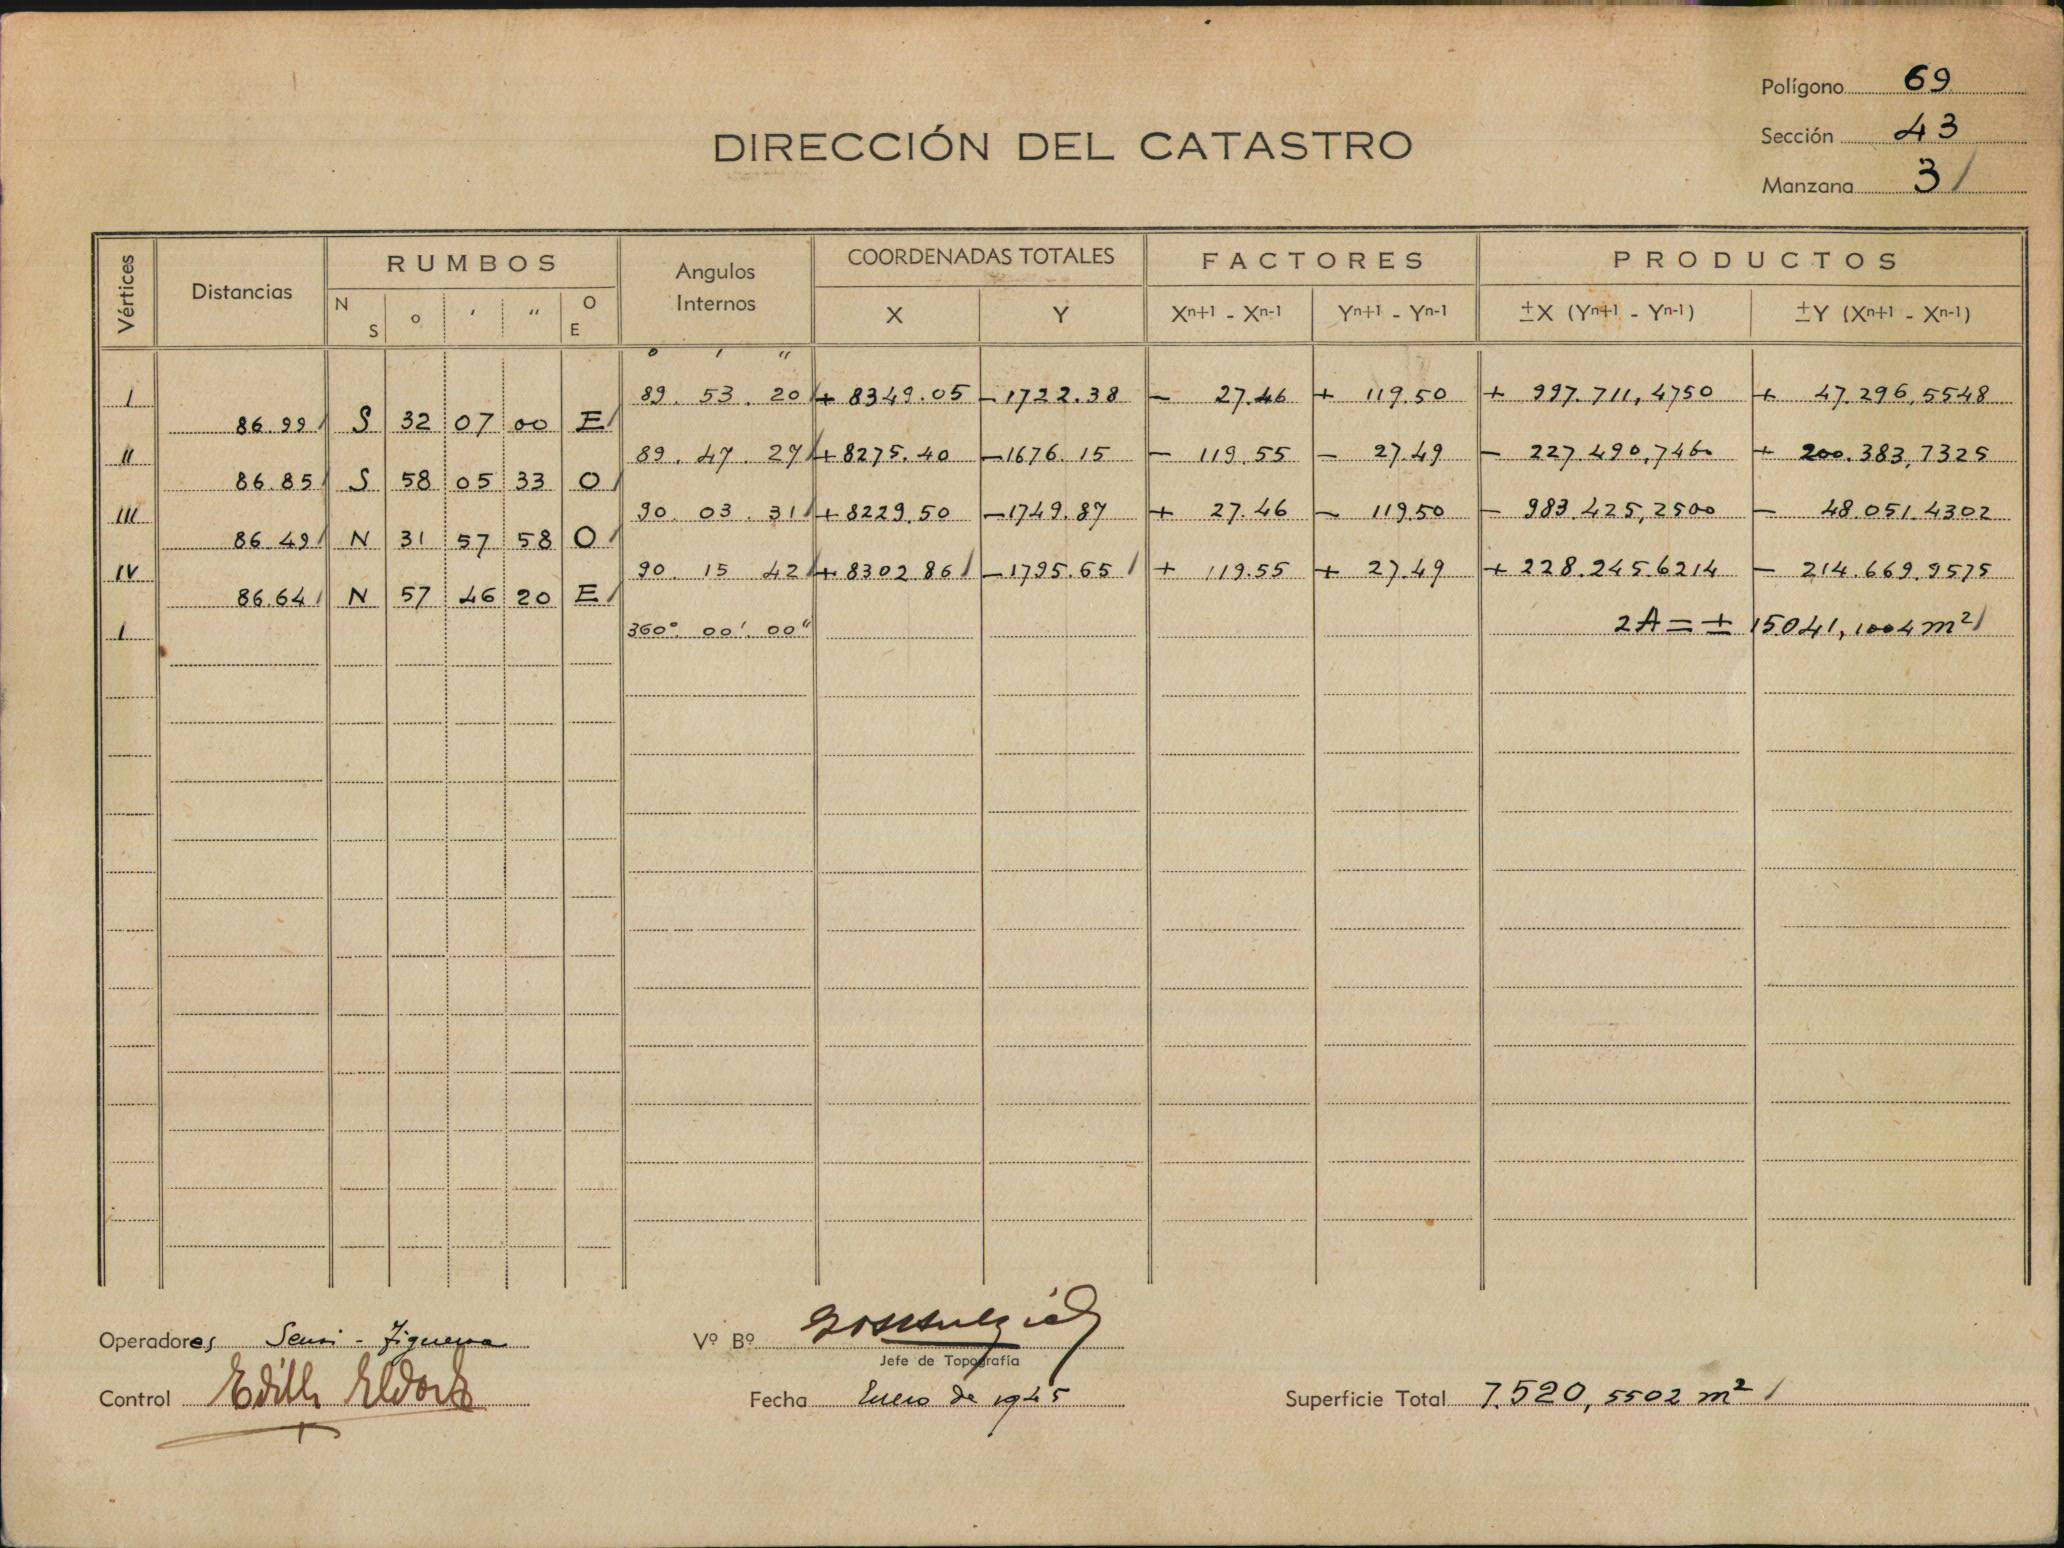 Polígono 69
Sección 43
DIRECCIÓN DEL CATASTRO
Manzana 3
Vértices Distancias RUMBOS Angulos Internos COORDENADAS TOTALES FACTORES PRODUCTOS
N S ° ' " O E X Y Xⁿ⁺¹ - Xⁿ⁻¹ Yⁿ⁺¹ - Yⁿ⁻¹ ±X (Yⁿ⁺¹ - Yⁿ⁻¹) ±Y (Xⁿ⁺¹ - Xⁿ⁻¹)
° ' "
I 89. 53. 20 + 8349.05 - 1722.38 - 27.46 + 119.50 + 997.711,4750 + 47.296,5548
86.99 S 32 07 00 E
II 89. 47. 27 + 8275.40 - 1676.15 - 119.55 - 27.49 - 227.490,7460 + 200.383,7325
86.85 S 58 05 33 O
III 90. 03. 31 + 8229.50 - 1749.87 + 27.46 - 119.50 - 983.425,2500 - 48.051.4302
86.49 N 31 57 58 O
IV 90. 15 42 + 8302.86 - 1795.65 + 119.55 + 27.49 + 228.245.6214 - 214.669.9575
86.64 N 57 46 20 E
I 360°. 00'. 00" 2A = ± 15041,1004 m²
Operadores Sensi - Figueroa
Vº Bº
Jefe de Topografía
Control Edith
Fecha Enero de 1945
Superficie Total 7.520,5502 m²